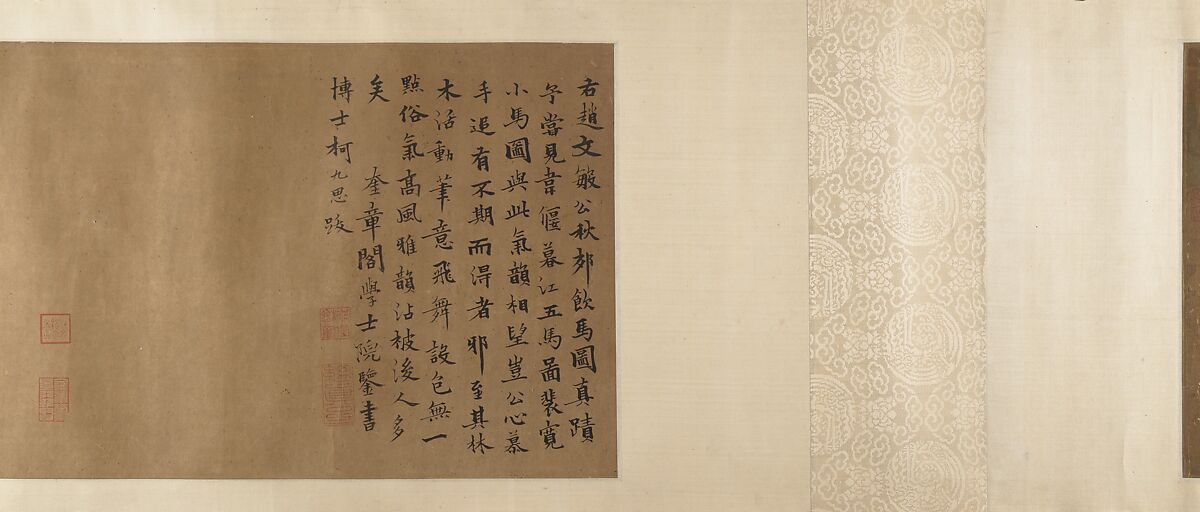 右趙文敏公秋郊飲馬圖真蹟
予嘗見韋偃暮江五馬啚裴寬
小馬圖與此氣韻相望豈公心慕
手追有不期而淂者邪至其林
木活動筆意飛舞設色無一
點俗氣高風雅韻沾被後人多
矣 奎章閣學士院鑒書
博士柯九思跋